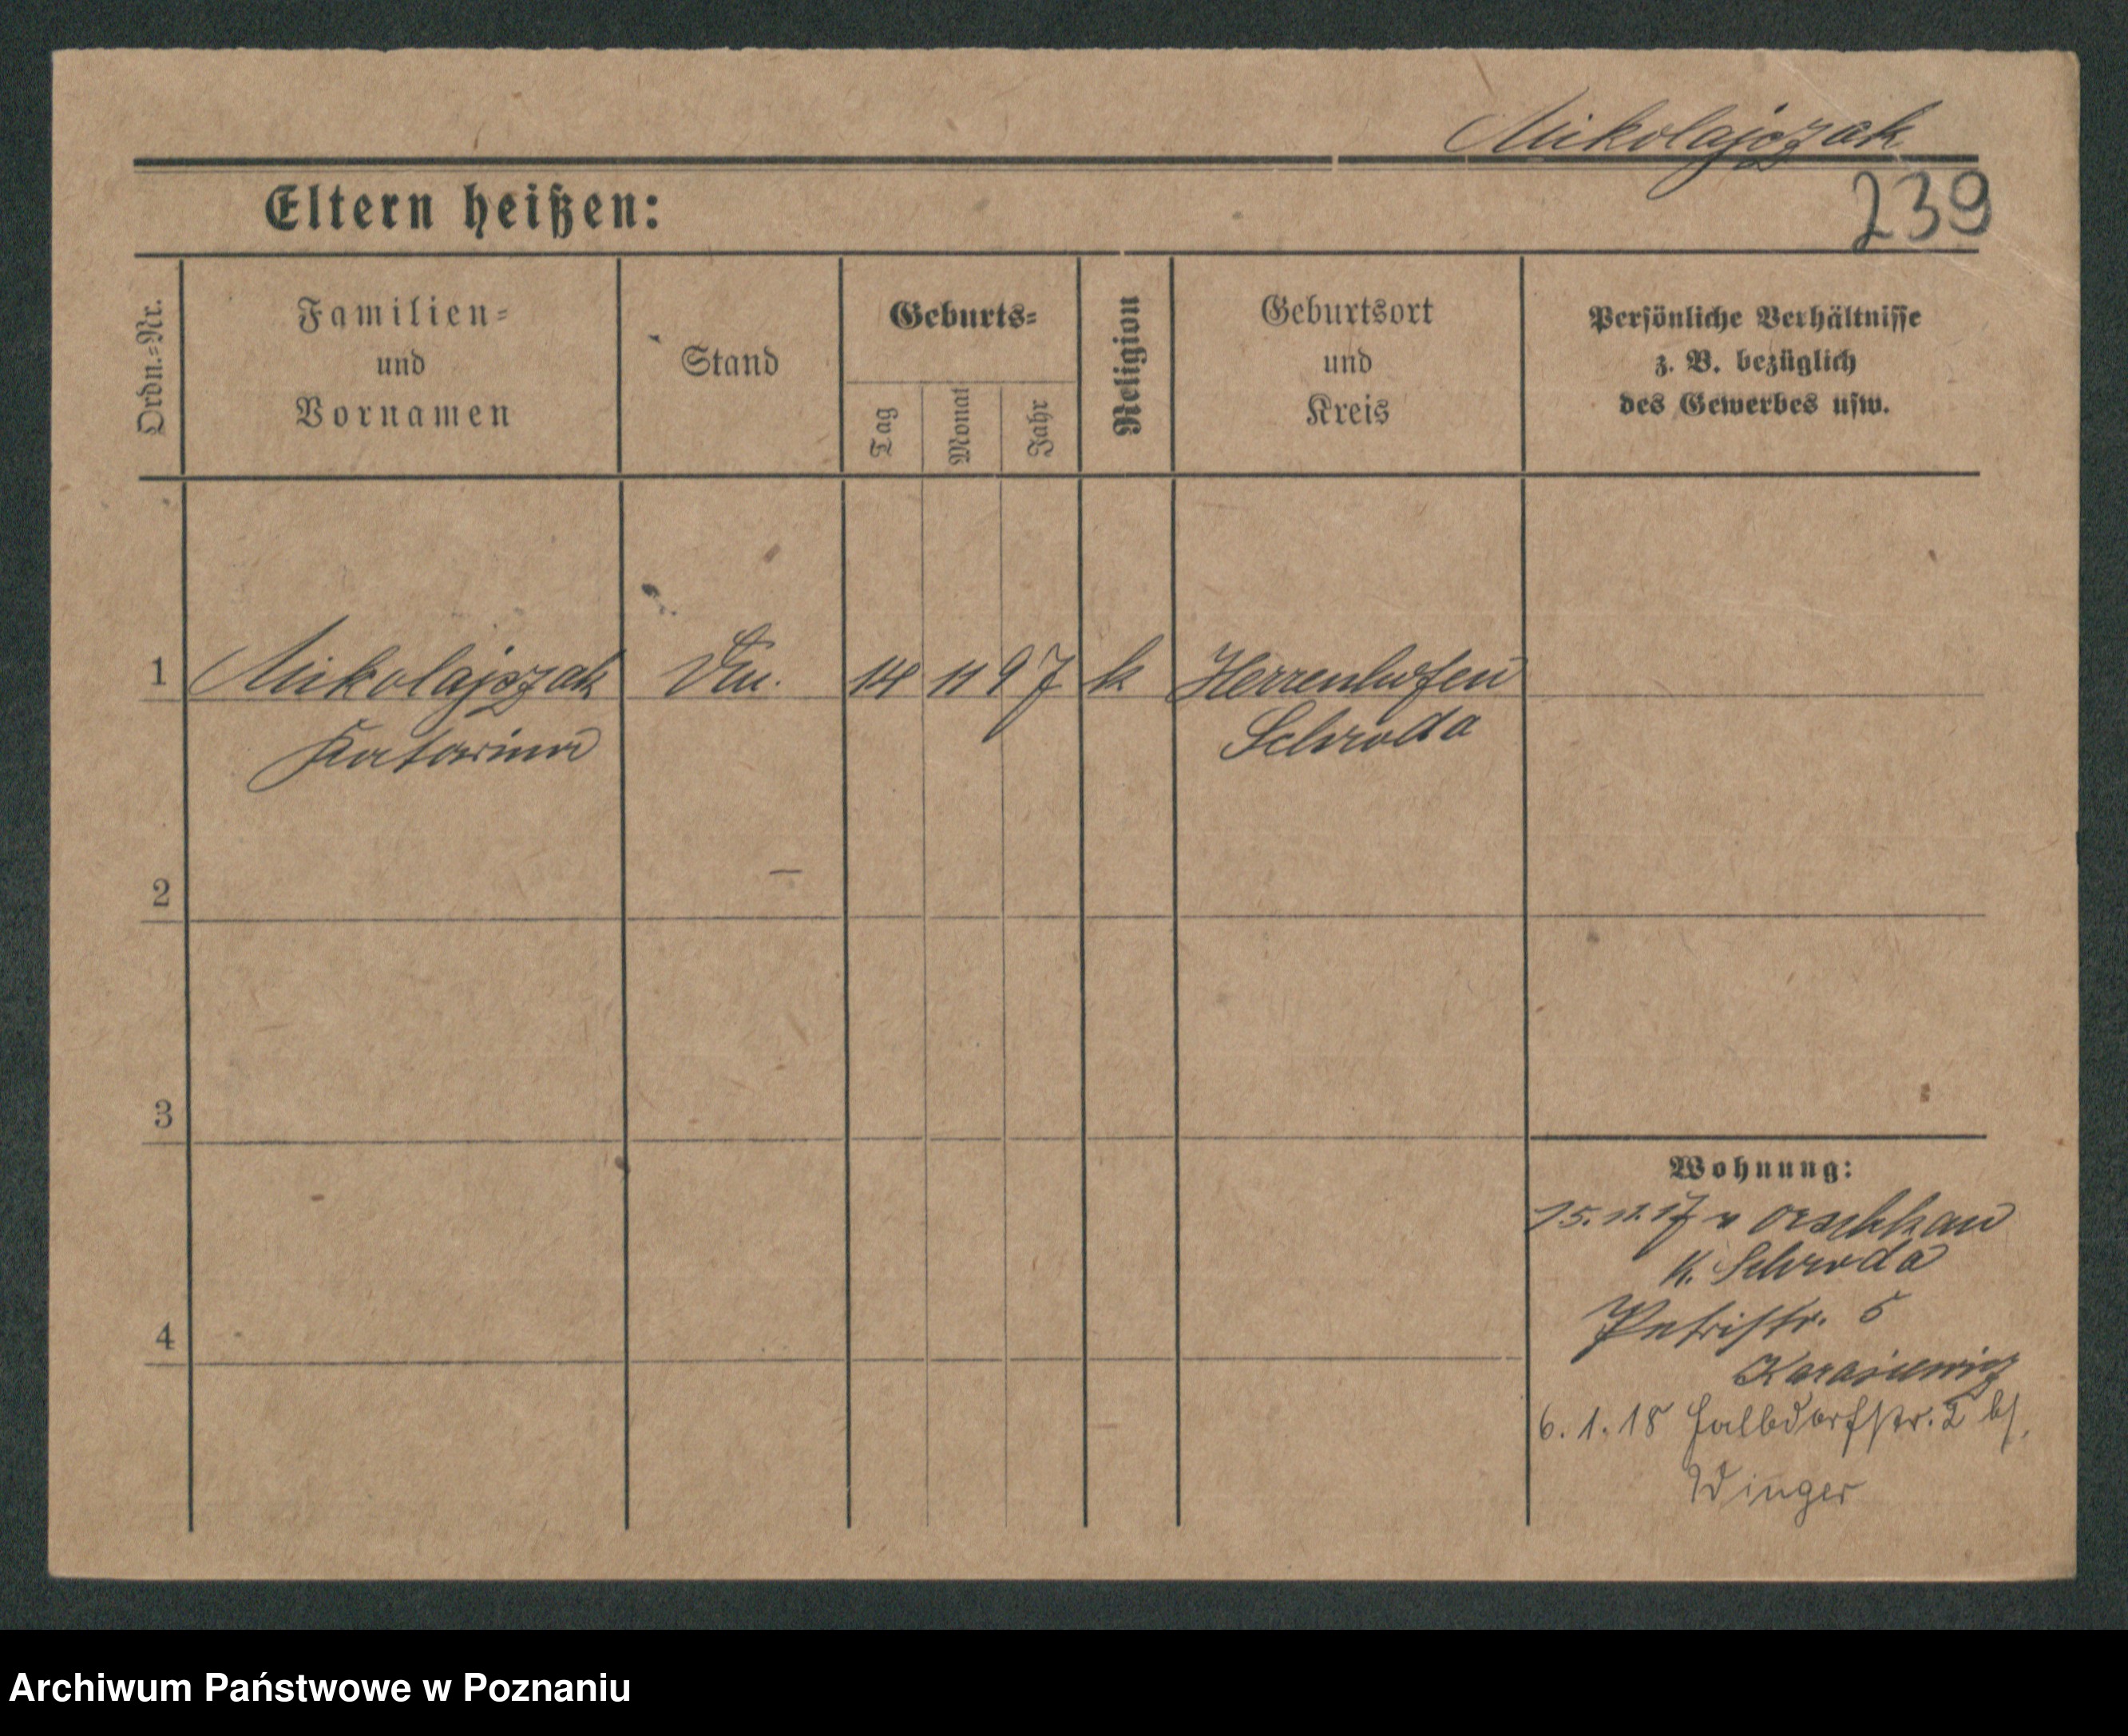 Mikolajczak
239
Eltern heißen:
Ordn.=Nr.
Familien=
und
Vornamen
Stand
Geburts=
Tag
Monat
Jahr
Religion
Geburtsort
und
Kreis
Persönliche Verhältnisse
z. B. bezüglich
des Gewerbes usw.
1 Mikolajczak 14 11 97 k Herrenhofen
Katarina Schroda
2
3
4
Wohnung:
15.11.17 v
K. Schroda
Petristr. 5
6.1.18 Halbdorfstr. 2 bs.
Winger
Archiwum Państwowe w Poznaniu